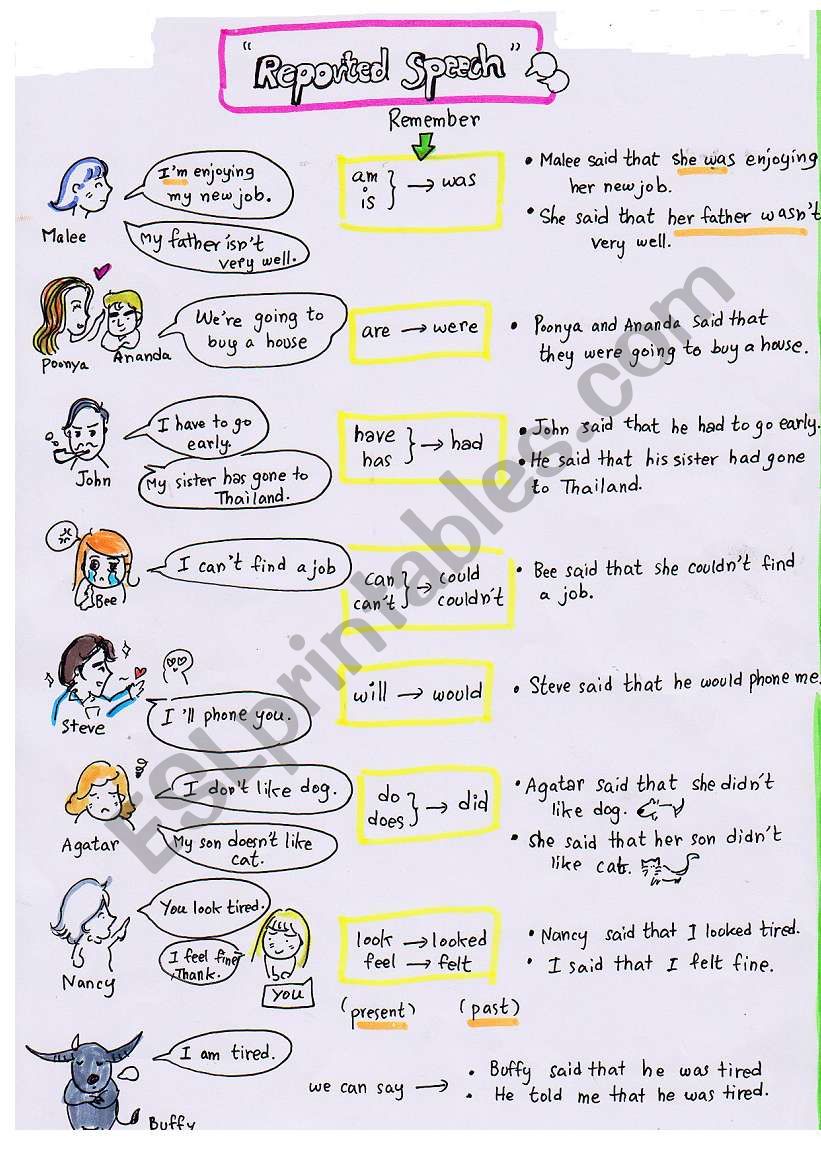 "Reported Speech"
Remember
I'm enjoying
my new job.
Malee
My father isn't
very well.
am
is
→ was
• Malee said that she was enjoying
her new job.
• She said that her father wasn't
very well.
Poonya
Ananda
We're going to
buy a house
are → were
• Poonya and Ananda said that
they were going to buy a house.
John
I have to go
early.
My sister has gone to
Thailand.
have
has
→ had
• John said that he had to go early.
• He said that his sister had gone
to Thailand.
Bee
I can't find a job
can
can't
→ could
couldn't
• Bee said that she couldn't find
a job.
Steve
I'll phone you.
will → would
• Steve said that he would phone me.
Agatar
I don't like dog.
My son doesn't like
cat.
do
does
→ did
• Agatar said that she didn't
like dog.
• She said that her son didn't
like cat.
Nancy
You look tired.
I feel fine
Thank.
YOU
look → looked
feel → felt
(present) (past)
• Nancy said that I looked tired.
• I said that I felt fine.
Buffy
I am tired.
we can say →
• Buffy said that he was tired
• He told me that he was tired.
ESLprintables.com